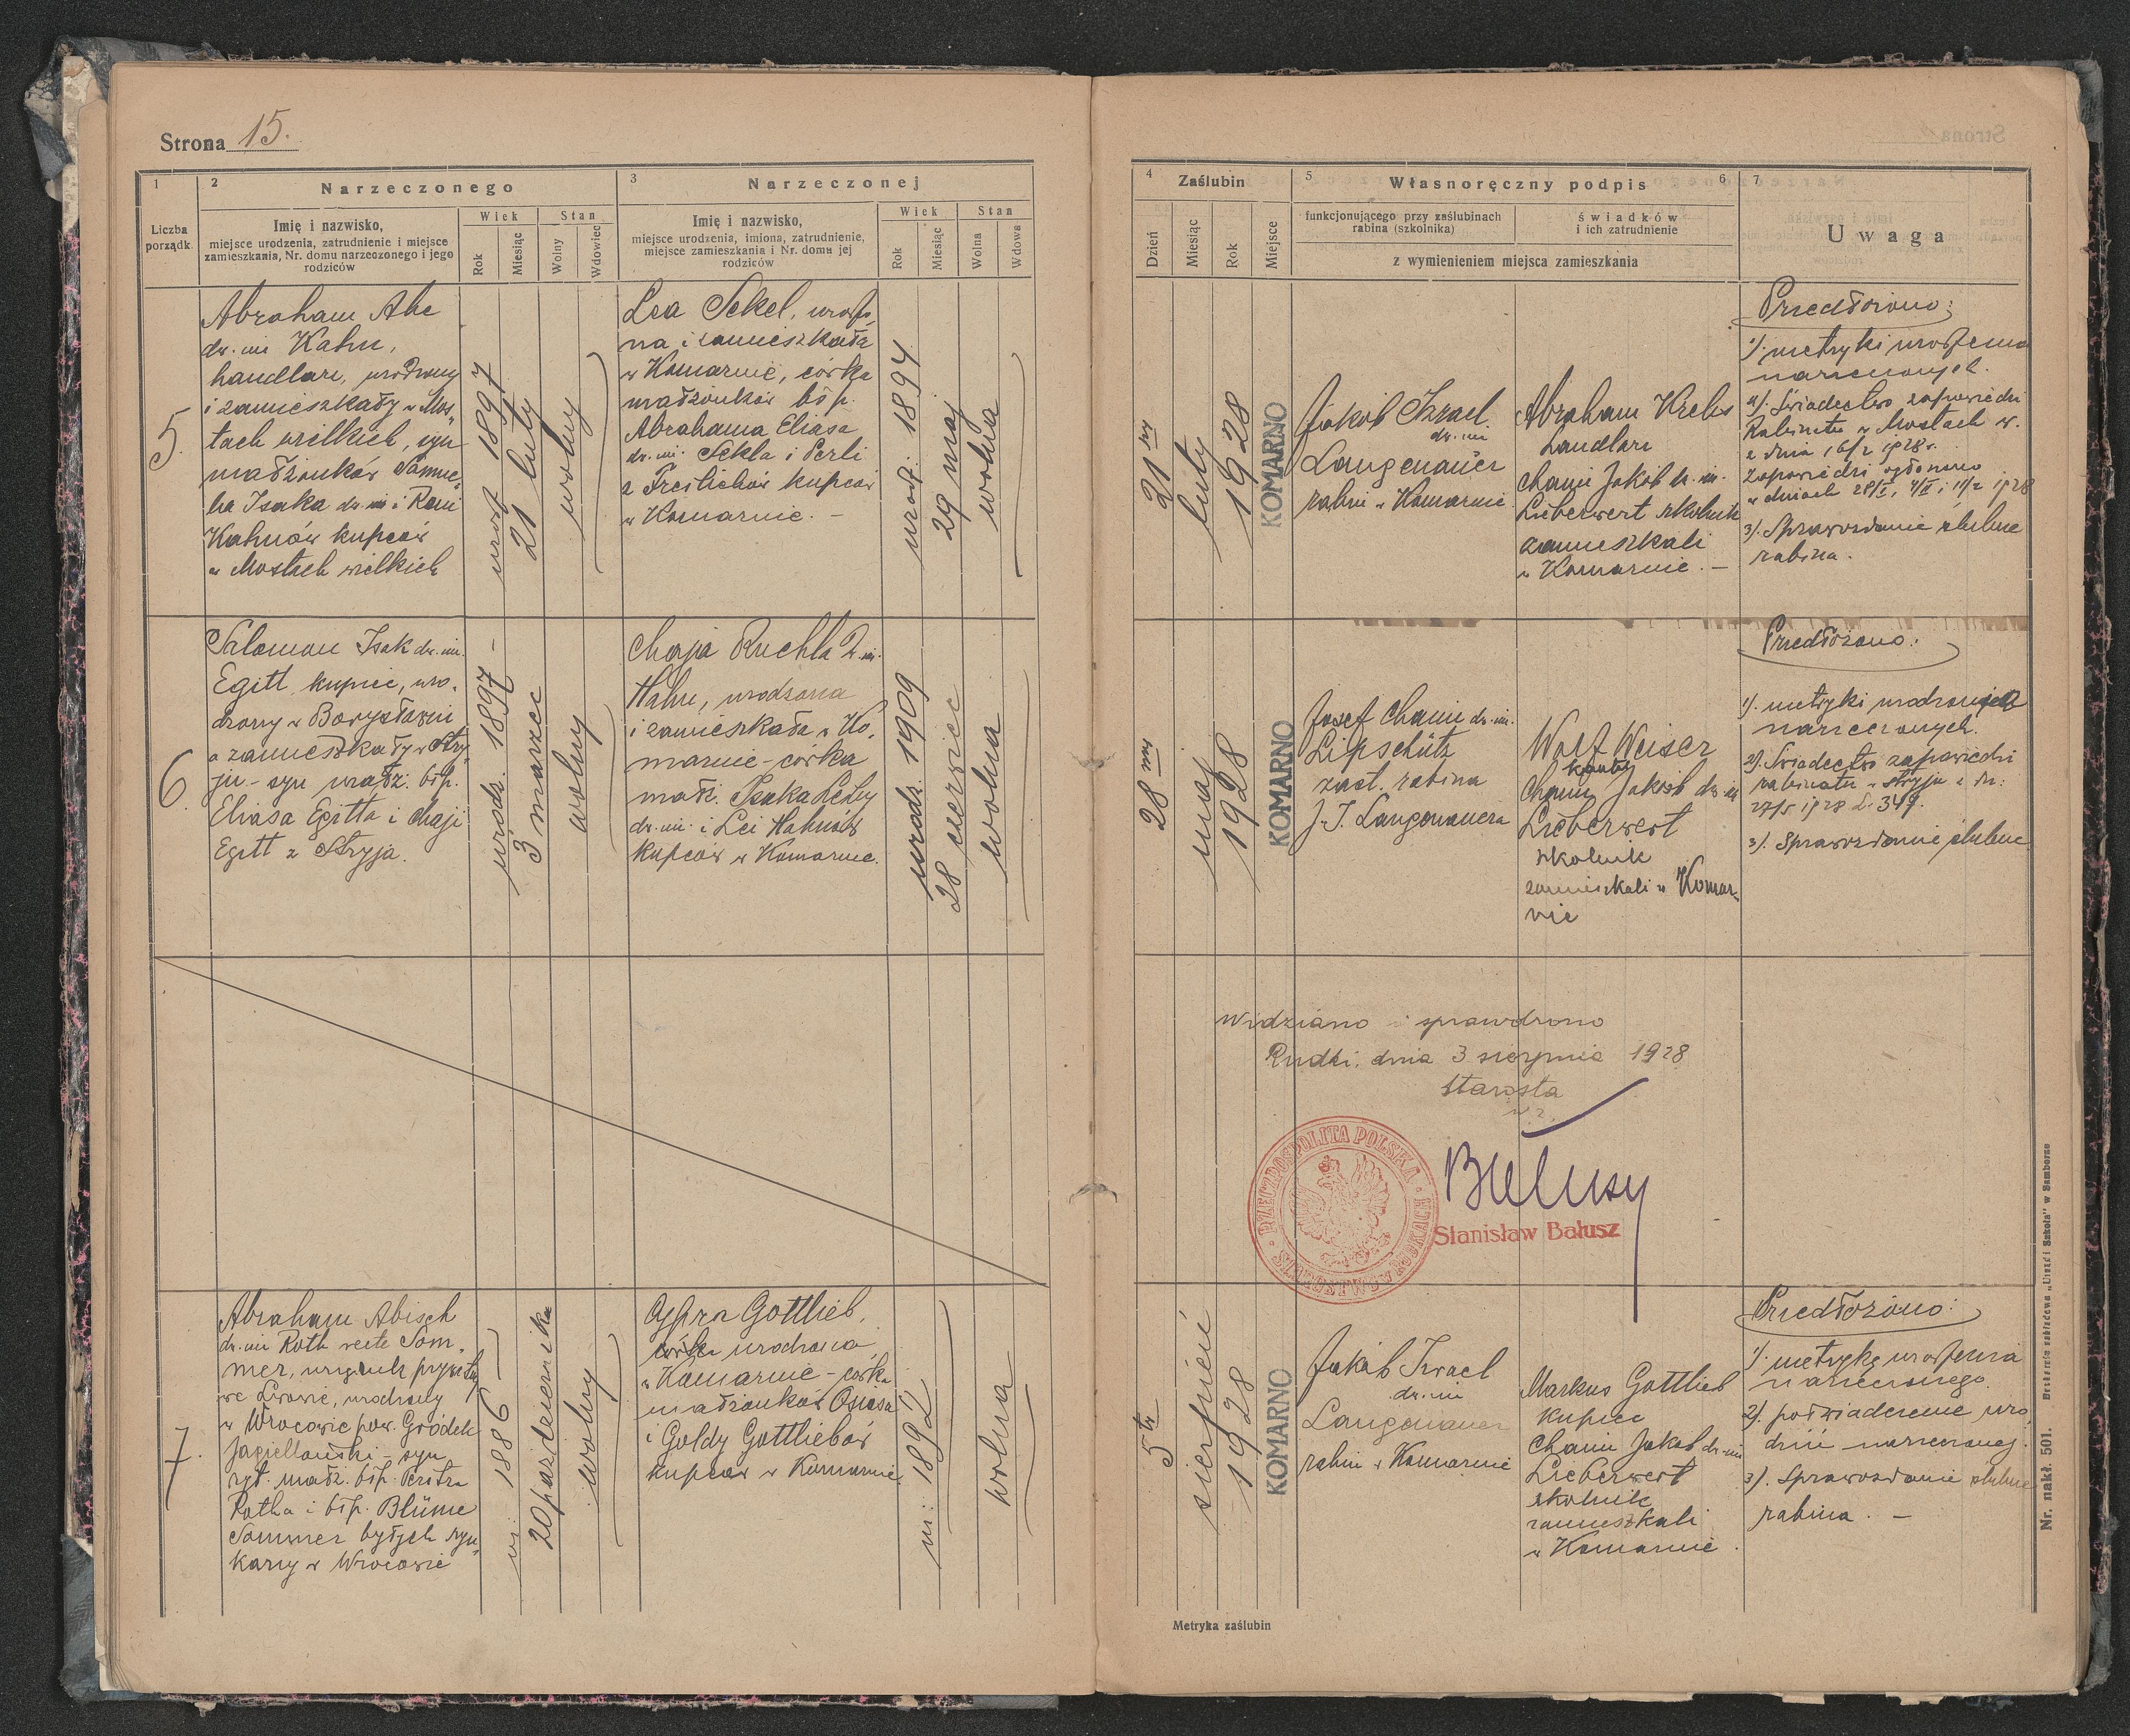 Strona 15.
1
2
Narzeczonego
3
Narzeczonej
Liczba
porządk.
Imię i nazwisko,
miejsce urodzenia, zatrudnienie i miejsce
zamieszkania, Nr. domu narzeczonego i jego
rodziców
Wiek
Stan
Rok
Miesiąc
Wolny
Wdowiec
Imię i nazwisko,
miejsce urodzenia, imiona, zatrudnienie,
miejsce zamieszkania i Nr. domu jej
rodziców
Wiek
Stan
Rok
Miesiąc
Wolna
Wdowa
5.
Abraham Abe
dw. im. Kahn,
handlarz, urodzony
i zamieszkały w Mos-
tach wielkich, syn
małżonków Samue-
la Isaka dw. im. i
Kahnów kupców
w Mostach wielkich
urodz. 1897
21 luty
wolny
Lea Sekel, urodzo-
na i zamieszkała
w Komarnie, córka
małżonków bł. p.
Abrahama Eliasa
dw. im. Sekla i Perli
z Freilichów kupców
w Komarnie. -
urodz. 1894
29 maj
wolna
6.
Salomon Isak dw. im.
Egitt kupiec, uro-
dzony w Borysławiu
a zamieszkały w Stry-
ju - syn małż. bł. p.
Eliasa Egitta i Chaji
Egitt z Stryja.
urodz. 1897 -
3 marzec
wolny
Chaja Ruchla 2. im.
Hahn, urodzona
i zamieszkała w Ko-
marnie - córka
małż. Isaka Leby
dw. im. i Lei Hahnów
kupców w Komarnie.
urodz. 1909
28 czerwiec
wolna
7.
Abraham Abisch
dw. im Roth recte Som-
mer, urzędnik prywatny
we Lwowie, urodzony
w Wrocowie pow. Gródek
Jagielloński - syn
ryt. małż. bł. p.
Rotha i bł. p. Blüme
Sommer byłych szyn-
karzy w Wrocowie
ur: 1886 -
20 października
wolny
Gottlieb,
urodzona
w Komarnie - córka
małżonków Osiasa
i Goldy Gottliebów
kupców w Komarnie.
ur: 1892
wolna
4
Zaślubin
5
Własnoręczny podpis
6
7
Dzień
Miesiąc
Rok
Miejsce
funkcjonującego przy zaślubinach
rabina (szkolnika)
świadków
i ich zatrudnienie
z wymienieniem miejsca zamieszkania
Uwaga
21 wy
luty
1928
KOMARNO
Jakób Izrael
dw. im
Langenauer
rabin w Komarnie
Abraham Krebs
handlarz
Chaim Jakób dw. im.
Lieberwert szkolnik
zamieszkali
w Komarnie. -
Przedłożono:
1). metryki urodzenia
narzeczonych.
2). Świadectwo zapowiedzi
Rabinatu w Mostach w.
z dnia 16/2 1928 r.
zapowiedzi ogłoszono
w dniach 28/I, 4/II i 11/2 1928
3). Sprawozdanie ślubne
rabina.
28 my
maj
1928
KOMARNO
Josef Chaim dw. im.
Lipschütz
zast. rabina
J. I. Langenauera
Wolf Weiser
Chaim Jakób dw. im
Lieberwert
szkolnik
zamieszkali w Komar-
nie
Przedłożono:
1). metryki urodzenia
narzeczonych.
2). Świadectwo zapowiedzi
rabinatu w Stryju z dn:
27/5 1928 L. 349.
3). Sprawozdanie ślubne
Widziano i sprawdzono
Rudki, dnia 3 sierpnia 1928
Starosta
RZECZPOSPOLITA POLSKA
STAROSTWO w RUDKACH
Stanisław Bałusz
5 ty
sierpień
1928
KOMARNO
Jakób Izrael
dw. im
Langenauer
rabin w Komarnie
Markus Gottlieb
kupiec
Chaim Jakób dw. im
Lieberwert
szkolnik
zamieszkali
w Komarnie.
Przedłożono:
1). metrykę urodzenia
narzeczonego.
2). poświadczenie uro-
dzin narzeczonej.
3). Sprawozdanie ślubne
rabina. -
Metryka zaślubin
Nr. nakł. 501.